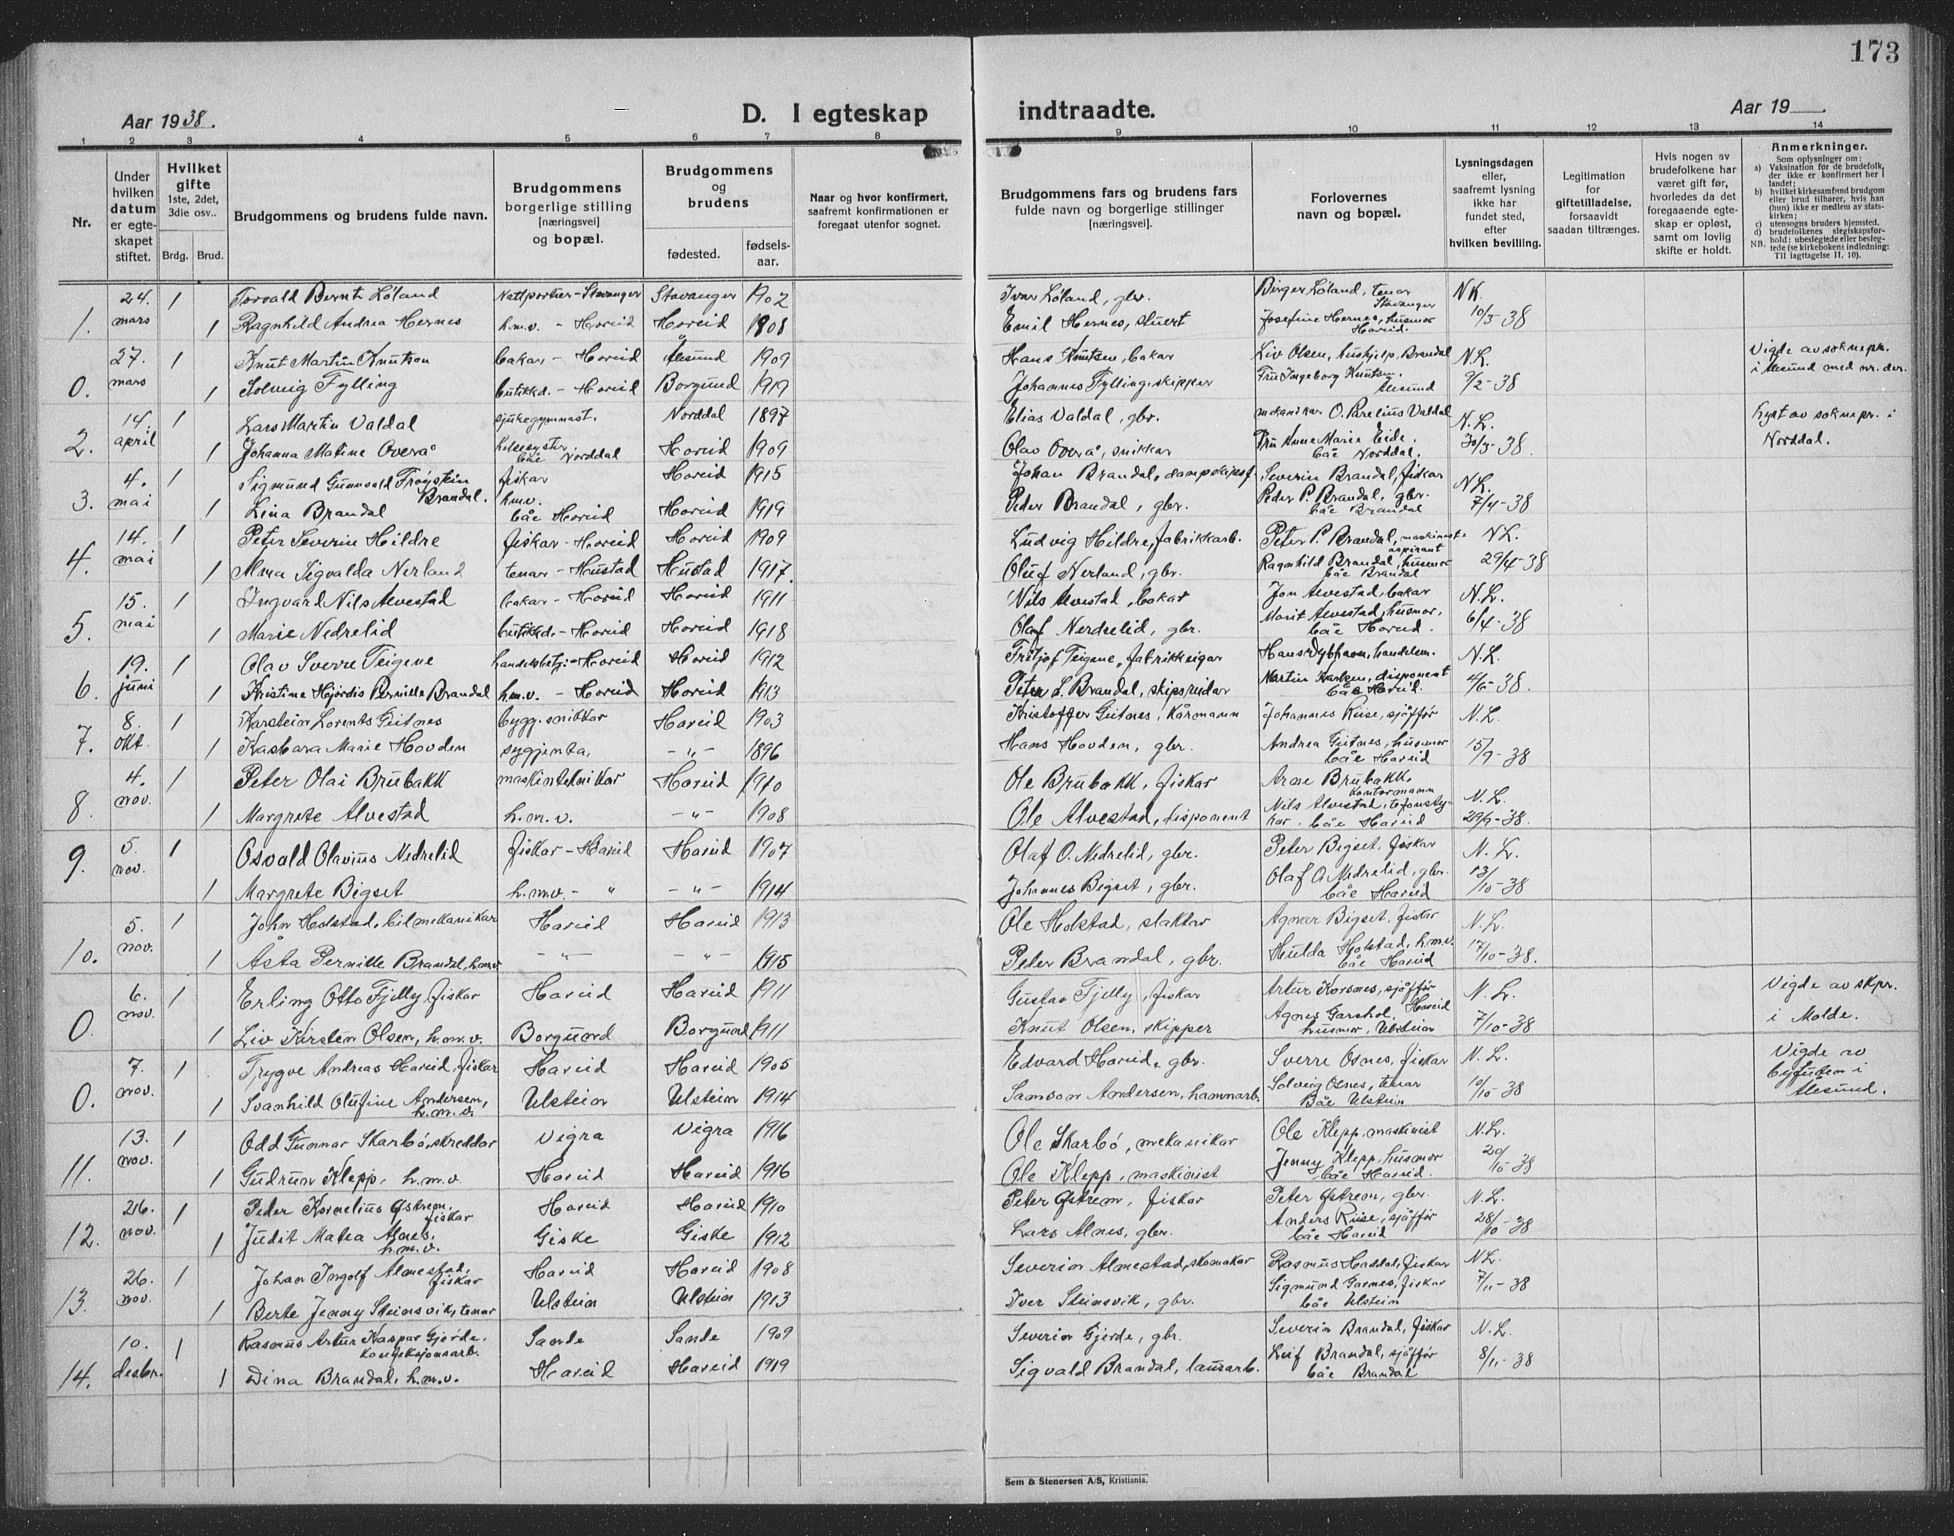 173
Aar 1938.
D. I egteskap
indtraadte.
Aar 19    .
1 2 3 4 5 6 7 8 9 10 11 12 13 14
Nr.
Under hvilken datum er egte-skapet stiftet.
Hvilket gifte 1ste, 2det, 3die osv..
Brdg. Brud.
Brudgommens og brudens fulde navn.
Brudgommens borgerlige stilling [næringsvei] og bopæl.
Brudgommens og brudens
fødested. fødsels-aar.
Naar og hvor konfirmert, saafremt konfirmationen er foregaat utenfor sognet.
Brudgommens fars og brudens fars fulde navn og borgerlige stillinger [næringsvei].
Forlovernes navn og bopæl.
Lysningsdagen eller, saafremt lysning ikke har fundet sted, efter hvilken bevilling.
Legitimation for giftetilladelse, forsaavidt saadan tiltrænges.
Hvis nogen av brudefolkene har været gift før, hvorledes da det foregaaende egte-skap er opløst, samt om lovlig skifte er holdt.
Anmerkninger.
Som oplysninger om:
a) Vaksination før de brudefolk, der ikke er konfirmert her i landet;
b) hvilket kirkesamfund brudgom eller brud tilhører, hvis han (hun) ikke er medlem av stats-kirken;
c) utensogns bruders hjemsted.
d) brudefolkenes slegtskapsfor-hold: ubeslegtede eller besleg-tede (se kirkebokens indledning: NB. Til iagttagelse II. 10).
1. 24. mars 1 Torvald Bernt Löland Nattportier - Stavanger Stavanger 1902 Ivar Löland, gbr. Birger Löland, tenar Stavanger N.K.
1 Ragnhild Andrea Hernes h.m.v. - Hareid Hareid 1908 Emil Hernes, stuert Josefine Hernes, husmor Hareid. 10/3-38
0. 27. mars 1 Knut Martin Knutsen bakar - Hareid Ålesund 1909 Hans Knutsen, bakar Liv Olsen, hushjelp, Brandal N.L. Vigde av soknepr.
1 Solveig Fylling butikkd. - Hareid Borgund 1919 Johannes Fylling, skipper Fru Ingeborg Knutsen, Ålesund 9/2-38 i Ålesund med nr. der.
2. 14. april 1 Lars Martin Valdal sjukegymnast. Norddal 1897 Elias Valdal, gbr. mekanikar O. Parelius Valdal N.L. Lyst av soknepr. i
1 Johanna Matine Overå helsesyster, båe Norddal Hareid 1909 Olav Overå, snikkar Fru Anne Marie Eide. båe Norddal. 30/3-38. Norddal.
3. 4. mai 1 Sigmund Gunnvald Fröystein Brandal. fiskar Hareid 1915 Johan Brandal, dampskipsf. Severin Brandal, fiskar N.L.
1 Lina Brandal h.m.v. båe Hareid Hareid 1919 Peder Brandal, gbr. Peder P. Brandal, gbr. båe Brandal 7/4-38
4. 14. mai 1 Peter Severin Hildre fiskar - Hareid Hareid 1909 Ludvig Hildre, fabrikkarb. Peter P. Brandal, maskinist aspirant N.L.
1 Alma Sigvalda Nerland tenar - Hustad Hustad 1917. Oluf Nerland, gbr. Ragnhild Brandal, husmor båe Brandal 29/4-38
5. 15. mai 1 Ingvard Nils Alvestad bakar - Hareid Hareid 1911 Nils Alvestad, bakar Jon Alvestad, bakar N.L.
1 Marie Nedrelid butikkd. - Hareid Hareid 1918 Olaf Nerdrelid, gbr. Marit Alvestad, husmor, båe Hareid. 6/4-38
6. 19. juni 1 Olav Sverre Teigene handelsbetj. - Hareid Hareid 1912 Fritjof Teigene, fabrikkeigar Hans Dybhavn, handelsm. N.L.
1 Kristine Hjördis Pernille Brandal h.m.v. - Hareid Hareid 1913 Peter L. Brandal, skipsreidar Martin Karlsen, disponent båe Hareid. 4/6-38.
7. 8. okt. 1 Karstein Lorents Geitnes bygg. snikkar Hareid 1903 Kristoffer Geitnes, kårmann Johannes Riise, sjåfför N.L.
1 Kasbara Marie Hovden syggjenta, - „ - 1896 Hans Hovden, gbr. Andrea Geitnes, husmor båe Hareid 15/9-38
8. 4. nov. 1 Peter Olai Brubakk maskinteknikar Hareid 1910 Ole Brubakk, fiskar Arne Brubakk, kontormann N.L.
1 Margrete Alvestad h.m.v. - „ - 1908 Ole Alvestad, disponent Nils Alvestad, tefonsty-rar. båe Hareid 29/9-38.
9. 5. nov. 1 Osvald Olavius Nedrelid fiskar - Hareid Hareid 1907 Olaf O. Nedrelid, gbr. Peter Bigset, fiskar N.L.
1 Margrete Bigset h.m.v. - „ - „ - 1914 Johannes Bigset, gbr. Olaf O. Nedrelid, gbr. båe Hareid 13/10-38
10. 5. nov. 1 John Holstad, bilmekanikar Hareid Hareid 1913 Ole Holstad, slaktar Agnar Bigset, fiskar N.L.
1 Åsta Pernille Brandal, h.m.v. - „ - - „ - 1915 Peter Brandal, gbr. Hulda Holstad, h.m.v. båe Hareid 17/10-38.
0. 6. nov. 1 Erling Otto Fjelly, fiskar Hareid Hareid 1911 Gustav Fjelly, fiskar Artur Korsnes, sjåfför Hareid N.L. Vigde av skpr.
1 Liv Kirsten Olsen, h.m.v. Borgund Borgund 1911 Knut Olsen, skipper Agnes Garshol, husmor, Ulstein 7/10-38 i Molde.
0. 7. nov. 1 Trygve Andreas Hareid, fiskar Hareid Hareid 1905 Edvard Hareid, gbr. Sverre Osnes, fiskar N.L. Vigde av
1 Svanhild Olufine Andersen, h.m.v. Ulstein Ulstein 1914 Samson Andersen, hamnarb. Solveig Osnes, tenar Båe Ulstein 10/10-38 byfuten i Ålesund.
11. 13. nov. 1 Odd Gunnar Skarbö, skreddar Vigra Vigra 1916 Ole Skarbö, mekanikar Ole Klepp, maskinist N.L.
1 Gudrun Klepp, h.m.v. Hareid Hareid 1916 Ole Klepp, maskinist Jenny Klepp, husmor båe Hareid. 20/10-38
12. 26. nov. 1 Peder Kornelius Østrem, fiskar Hareid Hareid 1910 Peter Østrem, fiskar Peter Østrem, gbr. N.L.
1 Judit Matea Alnes, h.m.v. Giske Giske 1912 Lars Alnes, gbr. Anders Riise, sjåfför båe Hareid 28/10-38
13. 26. nov. 1 Johan Ingolf Almestad, fiskar Hareid Hareid 1908 Severin Almestad, skomakar Rasmus Haddal, fiskar N.L.
1 Berte Jenny Steinsvik, tenar Ulstein Ulstein 1913 Iver Steinsvik, gbr. Sigmund Garnes, fiskar båe Ulstein 7/11-38
14. 10. desbr. 1 Rasmus Artur Kaspar Gjerde, konfeksjonsarb. Sande Sande 1909 Severin Gjerde, gbr. Severin Brandal, fiskar N.L.
1 Dina Brandal, h.m.v. Hareid Hareid 1919 Sigvald Brandal, lausarb. Leif Brandal, sjåfför båe Brandal 8/11-38
Sem & Stenersen A/S, Kristiania.